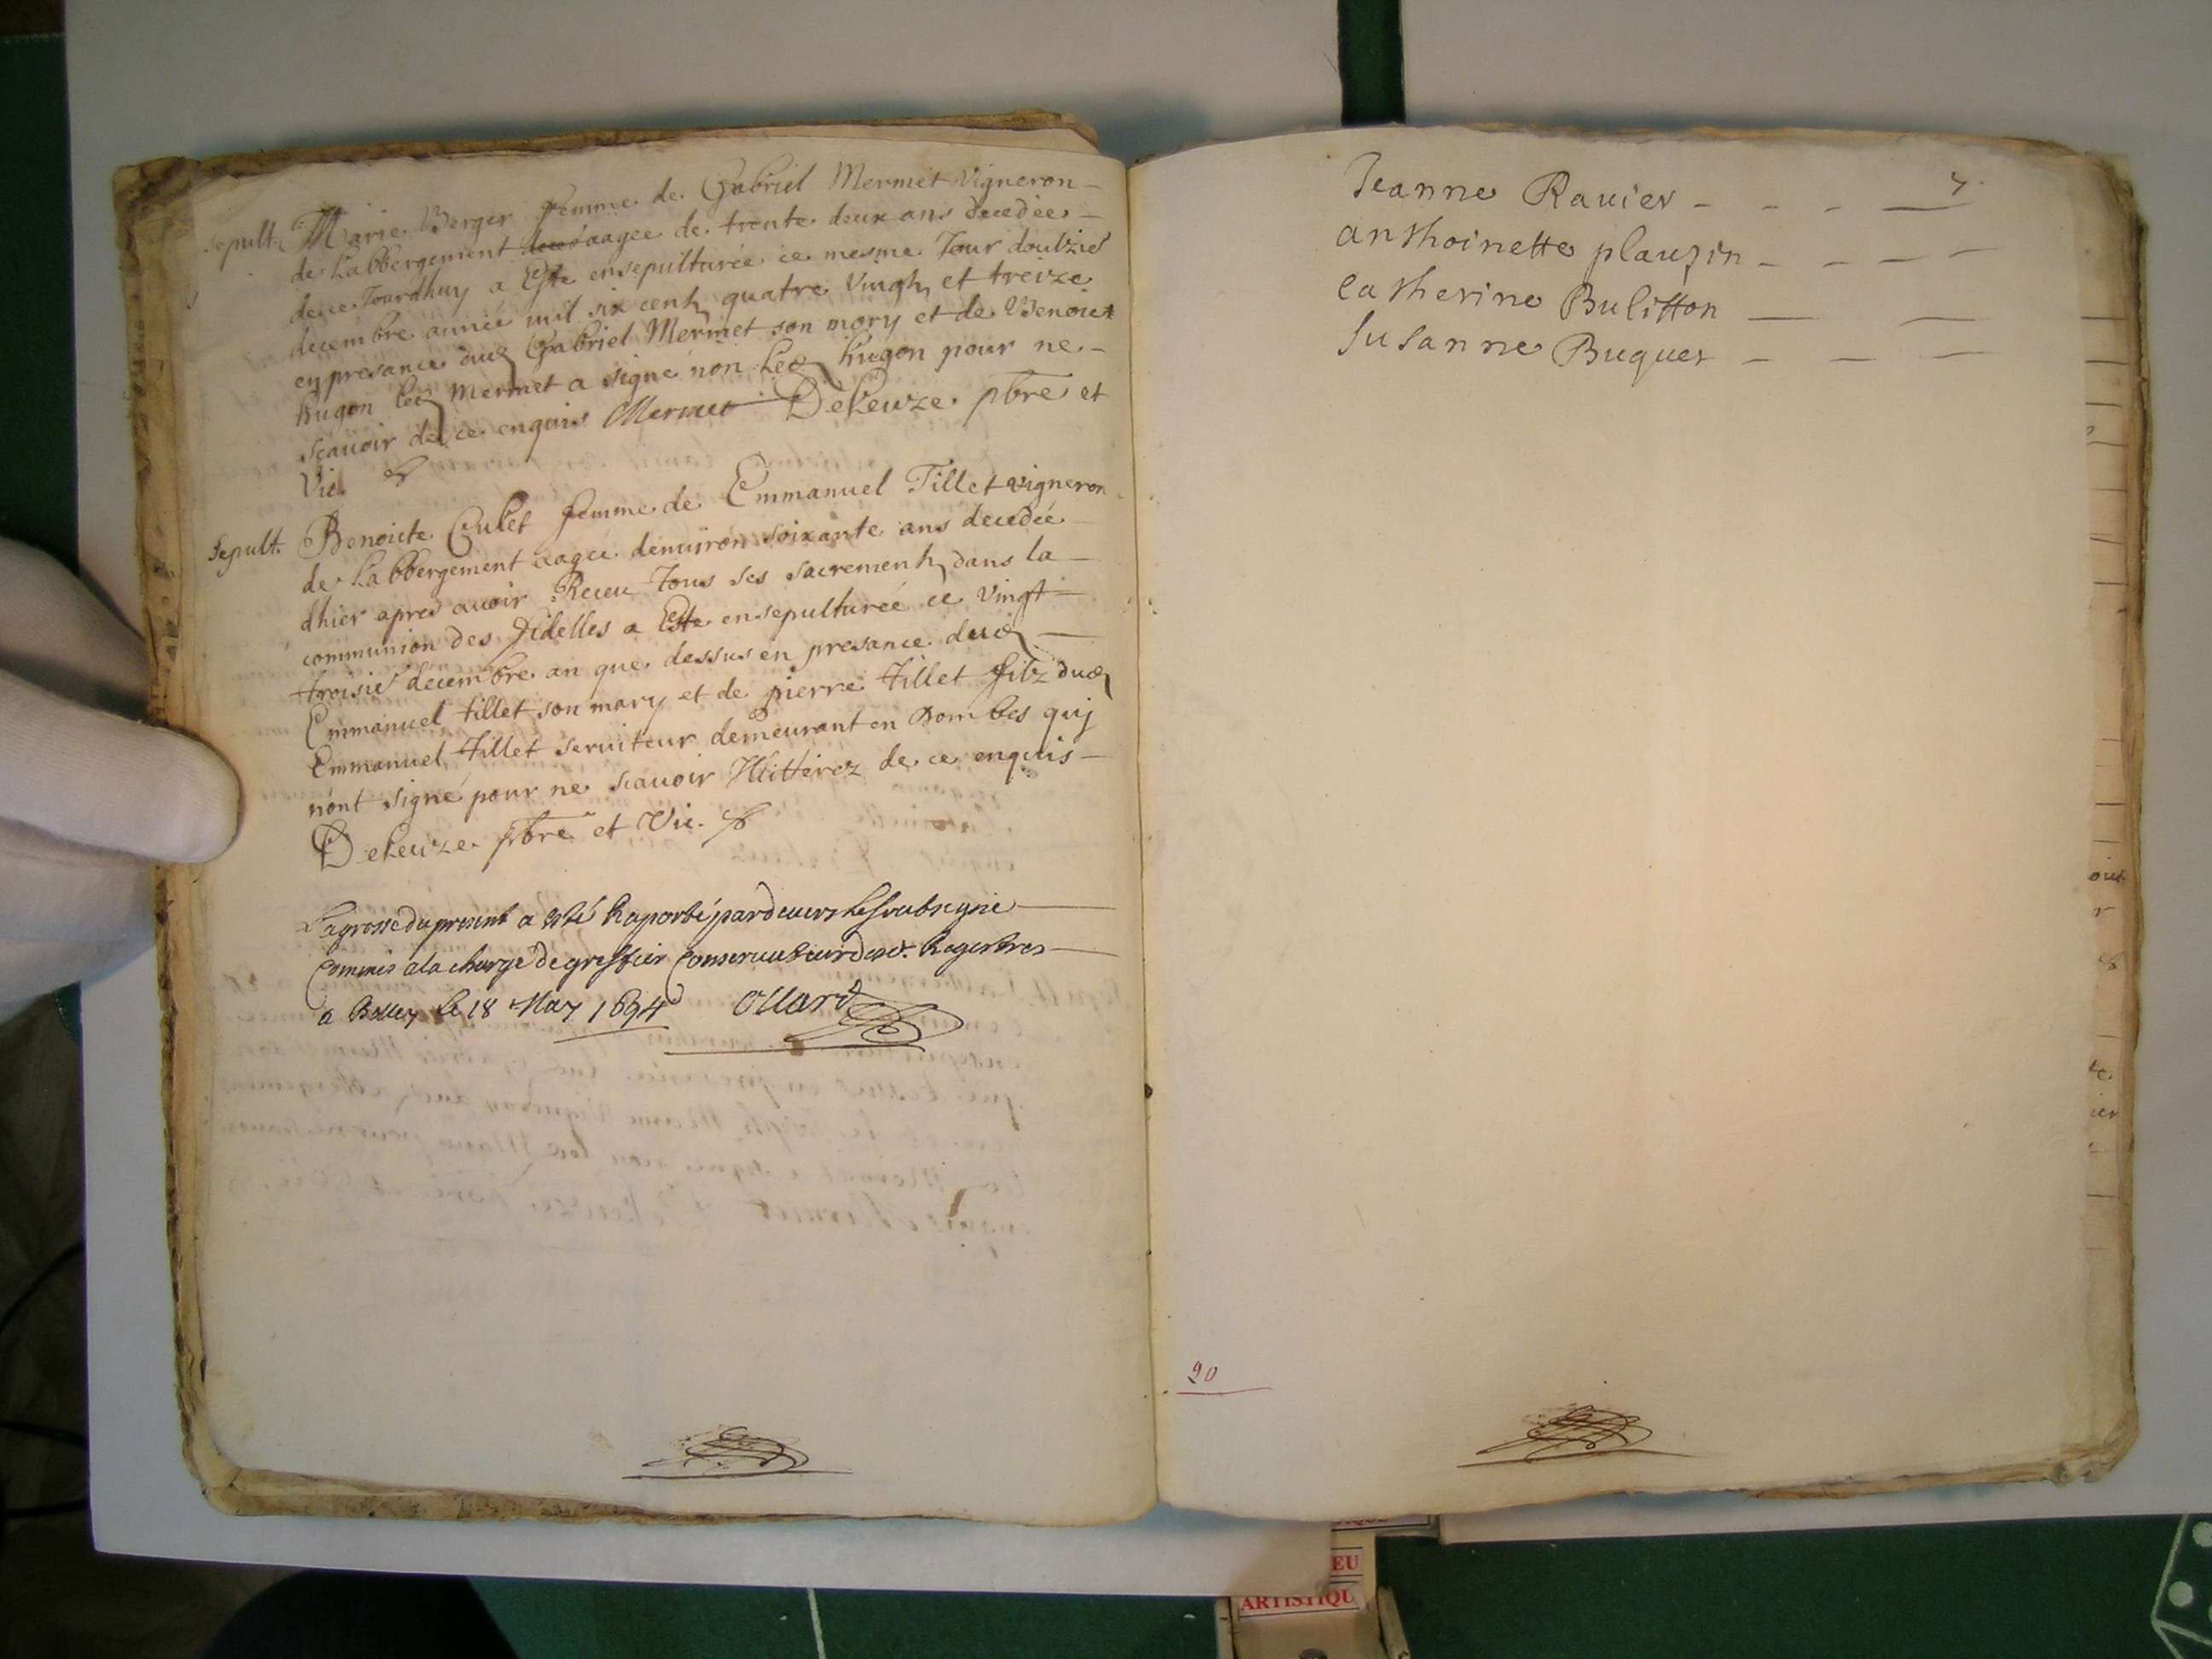 Sepult. Marie Berger femme de Gabriel Mermet Vigneron
de Labbergement aagee de trente deux ans decedee
de ce Jourdhuy a Este ensepulturée ce mesme Jour doulzie
decembre année mil six cents quatre Vingts et treize
en presance dud Gabriel Mermet son mary et de Benoict
hugon led Mermet a signé non led hugon pour ne
scauoir de ce enquis Mermet DeLeuze pbre et
Vic.
Sepult. Benoicte Culet femme de Emmanuel Tillet vigneron
de Labbergement aagee denuiron soixante ans decedée
dhier apres auoir Receu tous ses sacrements dans la
communion des fidelles a Este ensepulturée ce Vingt
troisie decembre an que dessus en presance dud
Emmanuel tillet son mary et de pierre tillet filz dud
Emmanuel tillet seruiteur demeurant en Dombes quj
nont signé pour ne scauoir Illitérez de ce enquis
DeLeuze pbre et Vic.
La grosse du present a esté Raporté pardeuers Le soubsigné
Commis a la charge de greffier Conseruateur desd. Registres
a Belley le 18 May 1694 Ollard
Jeanne Rauier 7
anthoinette plauzin
Catherine Bulitton
Susanne Buquet
90
oier
r
te
ier
EU
ARTISTIQU